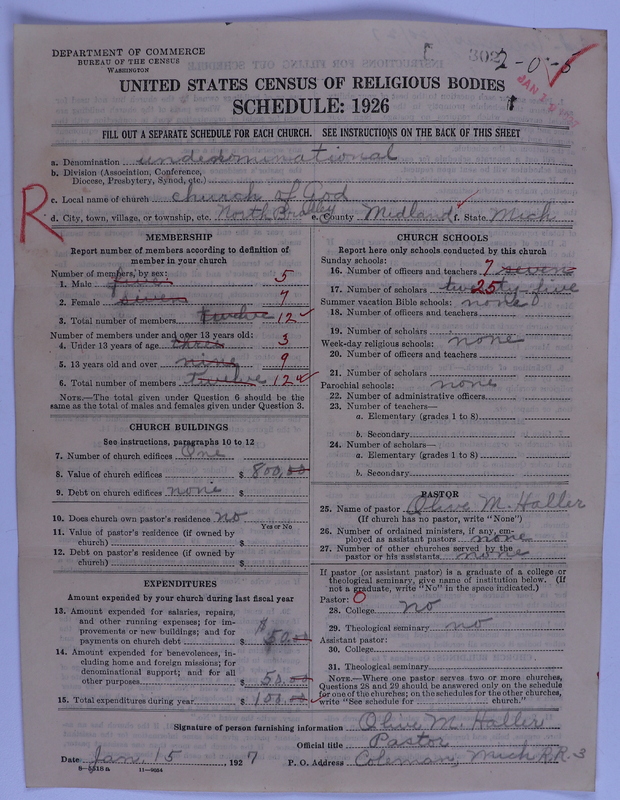 DEPARTMENT OF COMMERCE
BUREAU OF THE CENSUS
WASHINGTON
302
2-0-5
UNITED STATES CENSUS OF RELIGIOUS BODIES
SCHEDULE: 1926
FILL OUT A SEPARATE SCHEDULE FOR EACH CHURCH. SEE INSTRUCTIONS ON THE BACK OF THIS SHEET
a. Denomination undenominational
b. Division (Association, Conference, Diocese, Presbytery, Synod, etc.)
R
c. Local name of church church of God
d. City, town, village, or township, etc. North Bradley e. County Midland f. State Mich
MEMBERSHIP
Report number of members according to definition of member in your church
Number of members, by sex:
1. Male five 5
2. Female seven 7
3. Total number of members twelve 12
Number of members under and over 13 years old:
4. Under 13 years of age three 3
5. 13 years old and over nine 9
6. Total number of members twelve 12
NOTE.—The total given under Question 6 should be the same as the total of males and females given under Question 3.
CHURCH BUILDINGS
See instructions, paragraphs 10 to 12
7. Number of church edifices One
8. Value of church edifices $ 800.00
9. Debt on church edifices none $
10. Does church own pastor's residence no
Yes or No
11. Value of pastor's residence (if owned by church) $
12. Debt on pastor's residence (if owned by church) $
EXPENDITURES
Amount expended by your church during last fiscal year
13. Amount expended for salaries, repairs, and other running expenses; for improvements or new buildings; and for payments on church debt $ 50.00
14. Amount expended for benevolences, including home and foreign missions; for denominational support; and for all other purposes $ 50.00
15. Total expenditures during year $ 100.00
CHURCH SCHOOLS
Report here only schools conducted by this church
Sunday schools:
16. Number of officers and teachers 7 seven
17. Number of scholars twenty five 25
Summer vacation Bible schools: none
18. Number of officers and teachers
19. Number of scholars
Week-day religious schools: none
20. Number of officers and teachers
21. Number of scholars
Parochial schools: none
22. Number of administrative officers
23. Number of teachers—
a. Elementary (grades 1 to 8)
b. Secondary
24. Number of scholars—
a. Elementary (grades 1 to 8)
b. Secondary
PASTOR
25. Name of pastor Olive M. Haller
(If church has no pastor, write "None")
26. Number of ordained ministers, if any, employed as assistant pastors none
27. Number of other churches served by the pastor or his assistants none
If pastor (or assistant pastor) is a graduate of a college or theological seminary, give name of institution below. (If not a graduate, write "No" in the space indicated.)
Pastor: 0
28. College no
29. Theological seminary no
Assistant pastor:
30. College
31. Theological seminary
NOTE.—Where one pastor serves two or more churches, Questions 28 and 29 should be answered only on the schedule for one of the churches; on the schedules for the other churches, write "See schedule for church."
Signature of person furnishing information Olive M. Haller
Official title Pastor
Date Jan. 15 1927 P. O. Address Coleman, Mich R.R. 3
8—5518a 11—9664